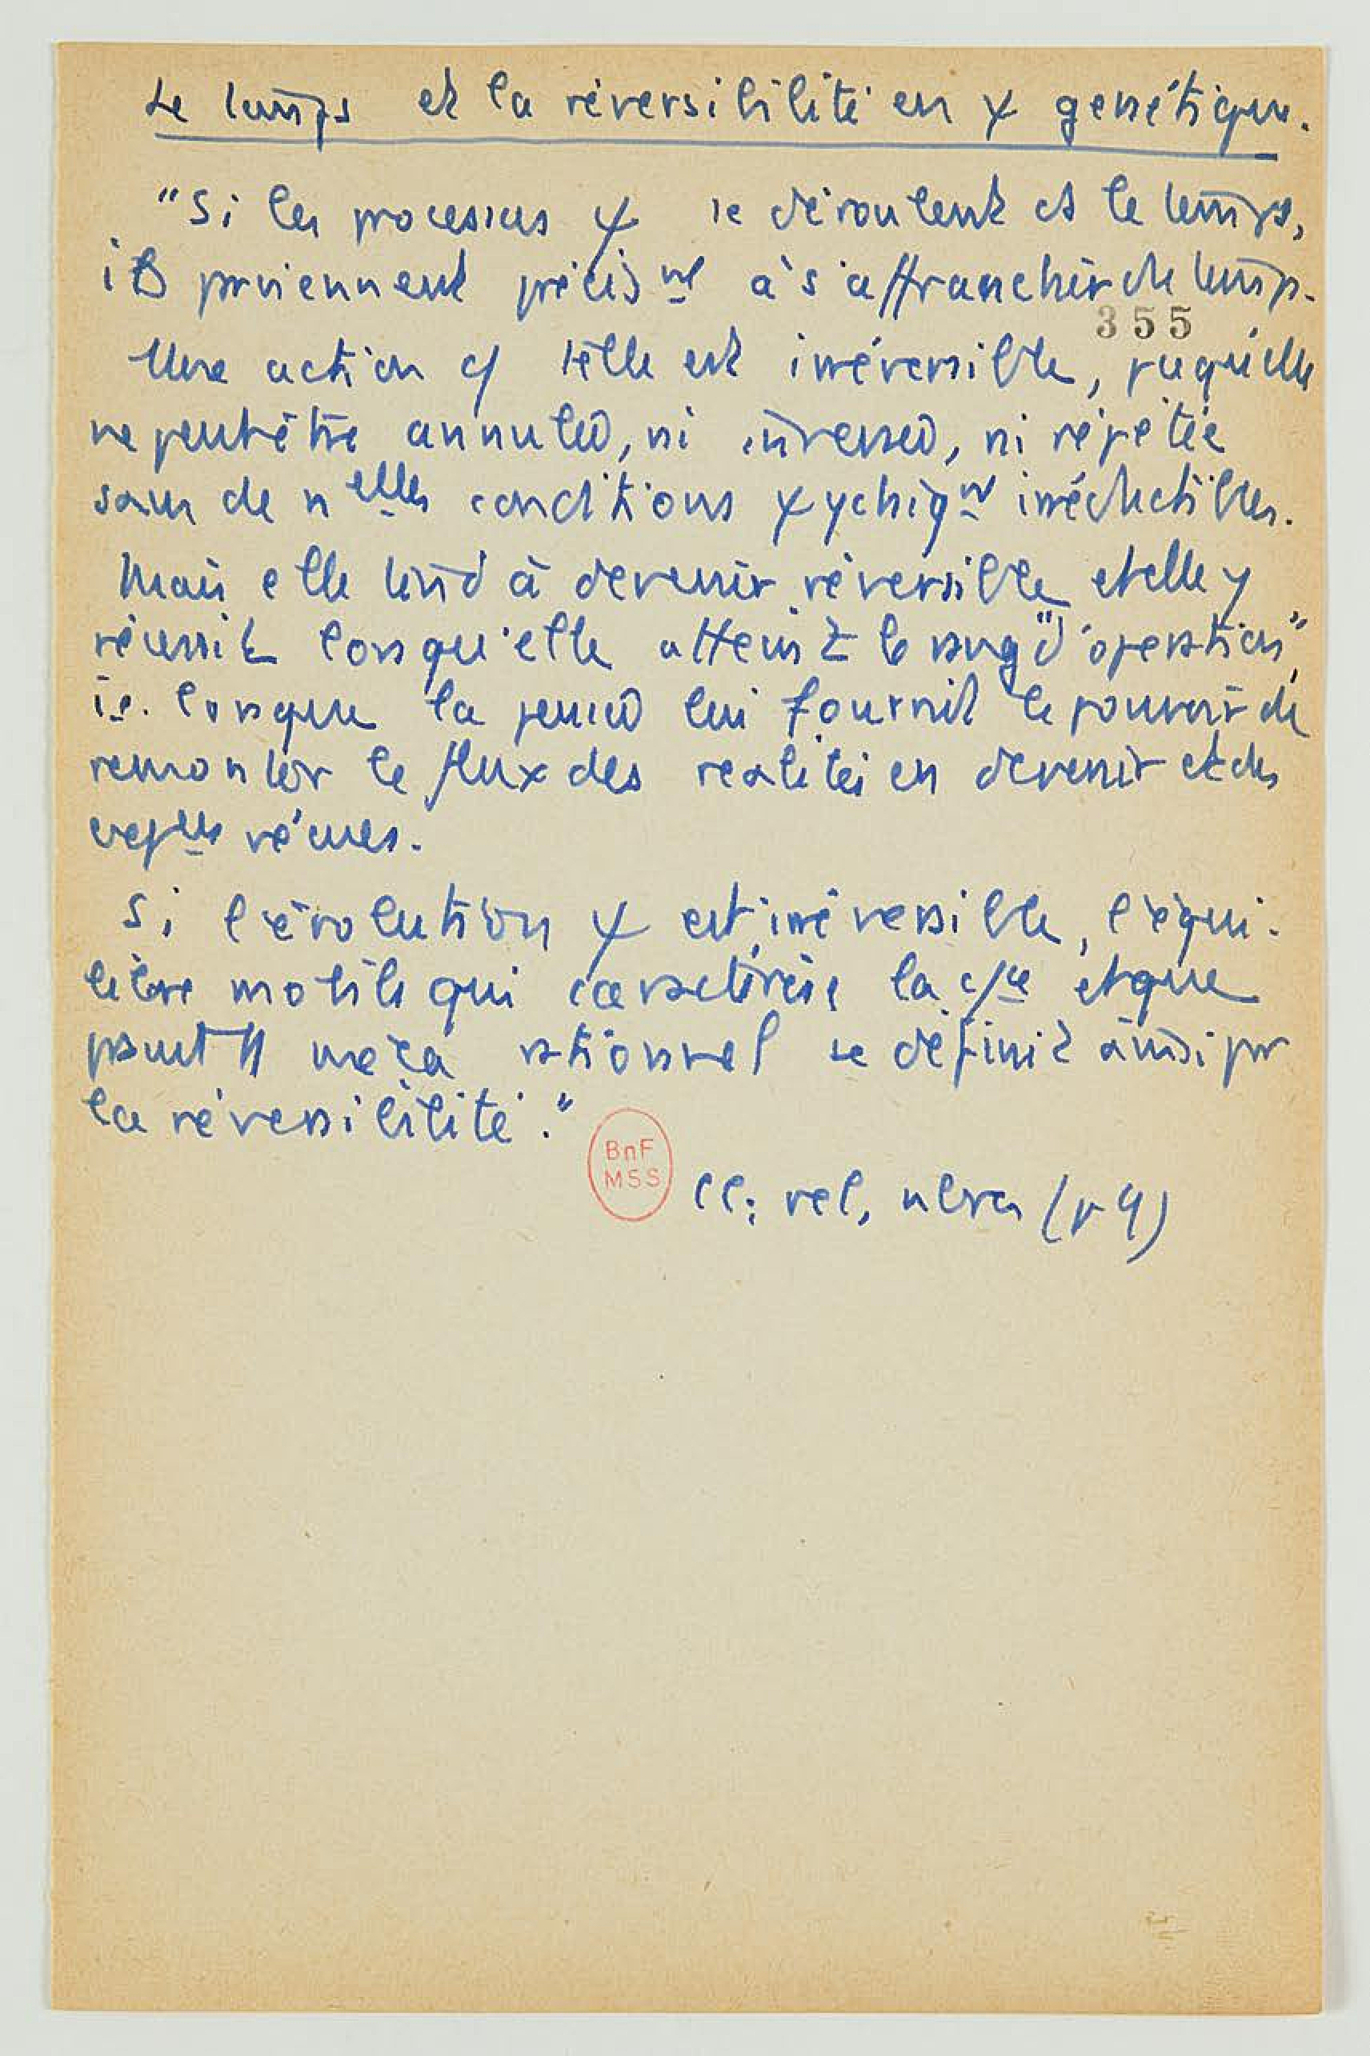 Le temps et la réversibilité en ψ génétique.
"Si les processus ψ se déroulent ds le temps,
ils parviennent précis^mt à s'affranchir du temps.
355
Une action c/ telle est irréversible, puisqu'elle
ne peut être annulée, ni inversée, ni répétée
sans de n^elles conditions ψychiq^ues irréductibles.
Mais elle tend à devenir réversible et elle y
réussit lorsqu'elle atteint le rang "d'opération",
i.e. lorsque la pensée lui fournit le pouvoir de
remonter le flux des réalités en devenir et des
vécues.
Si l'évolution ψ est irréversible, l'équi-
libre mobile qui caractérise la et que
rationnel se définit ainsi par
la réversibilité."
BnF
MSS
Cl; rel, (p 9)